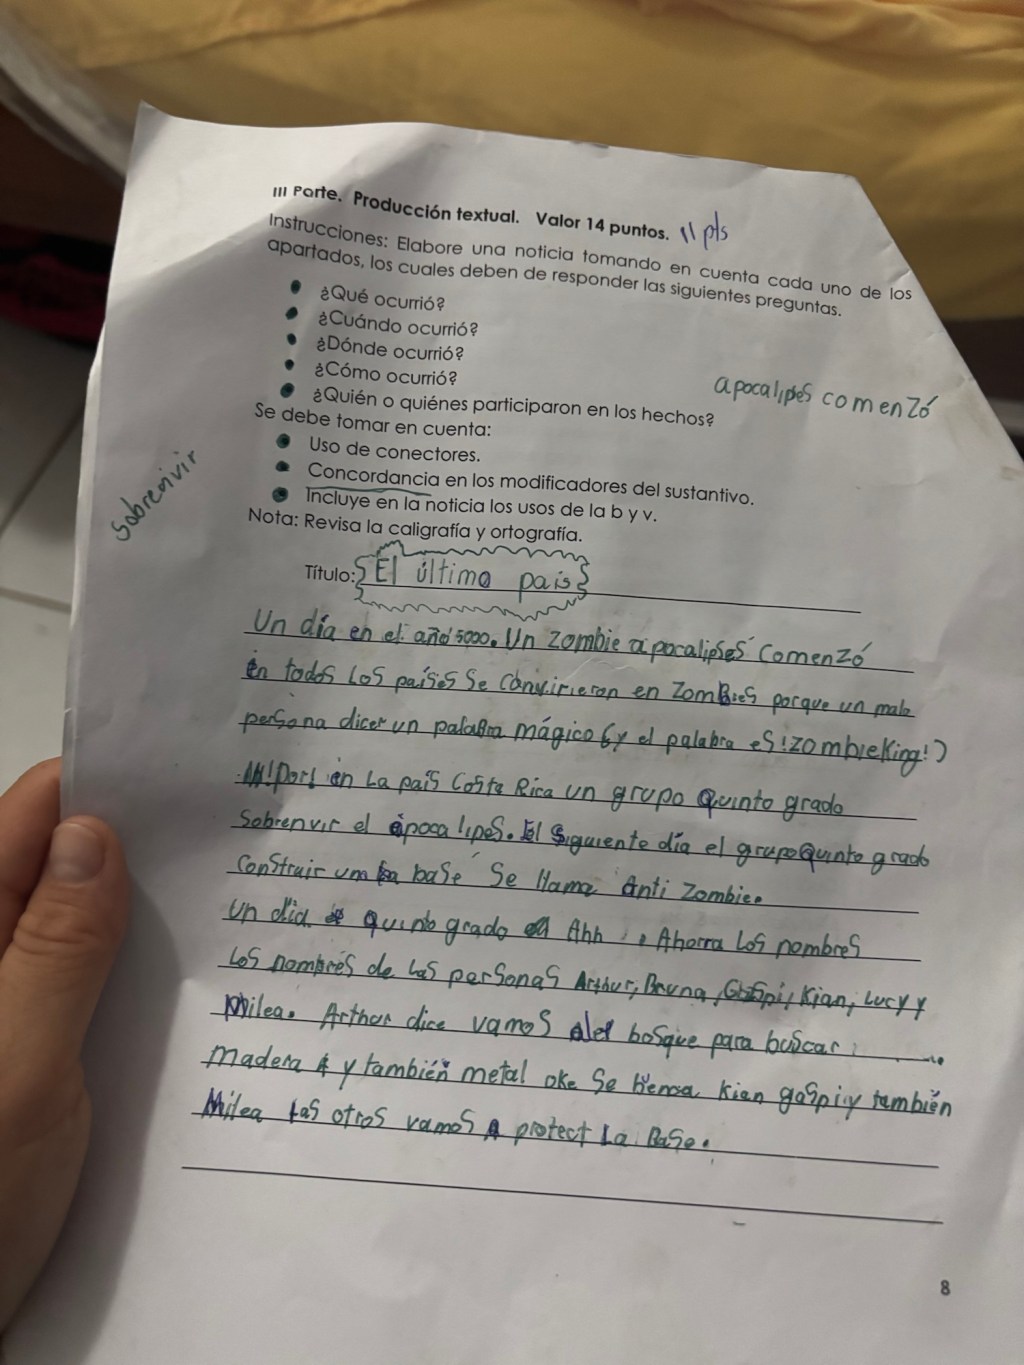 III Parte. Producción textual. Valor 14 puntos. 11 pts
Instrucciones: Elabore una noticia tomando en cuenta cada uno de los
apartados, los cuales deben de responder las siguientes preguntas.
¿Qué ocurrió?
¿Cuándo ocurrió?
¿Dónde ocurrió?
¿Cómo ocurrió?
¿Quién o quiénes participaron en los hechos?
apocalipses comenzó
Se debe tomar en cuenta:
Uso de conectores.
Concordancia en los modificadores del sustantivo.
Incluye en la noticia los usos de la b y v.
Nota: Revisa la caligrafía y ortografía.
sobrevivir
Título: El último país
Un día en el año 5000. Un zombie apocalipses comenzó
en todos Los países se convirieron en zombies porque un mala
persona dicer un palabra mágico (y el palabra es !zombieKing!)
en La país Costa Rica un grupo Quinto grado
sobrenvir el epocalipes. El siguiente día el grupo Quinto grado
construir um base se llama Anti zombie.
un día Quinto grado Ahh Ahorra Los nombres
Los nombres de las personas Arthur, Bruna, Kian, Lucy y
Milea. Arthur dice vamos bosque para buscar
madera y también metal oke se Kian gaspi y también
Milea Las otros vamos A protect La Base.
8